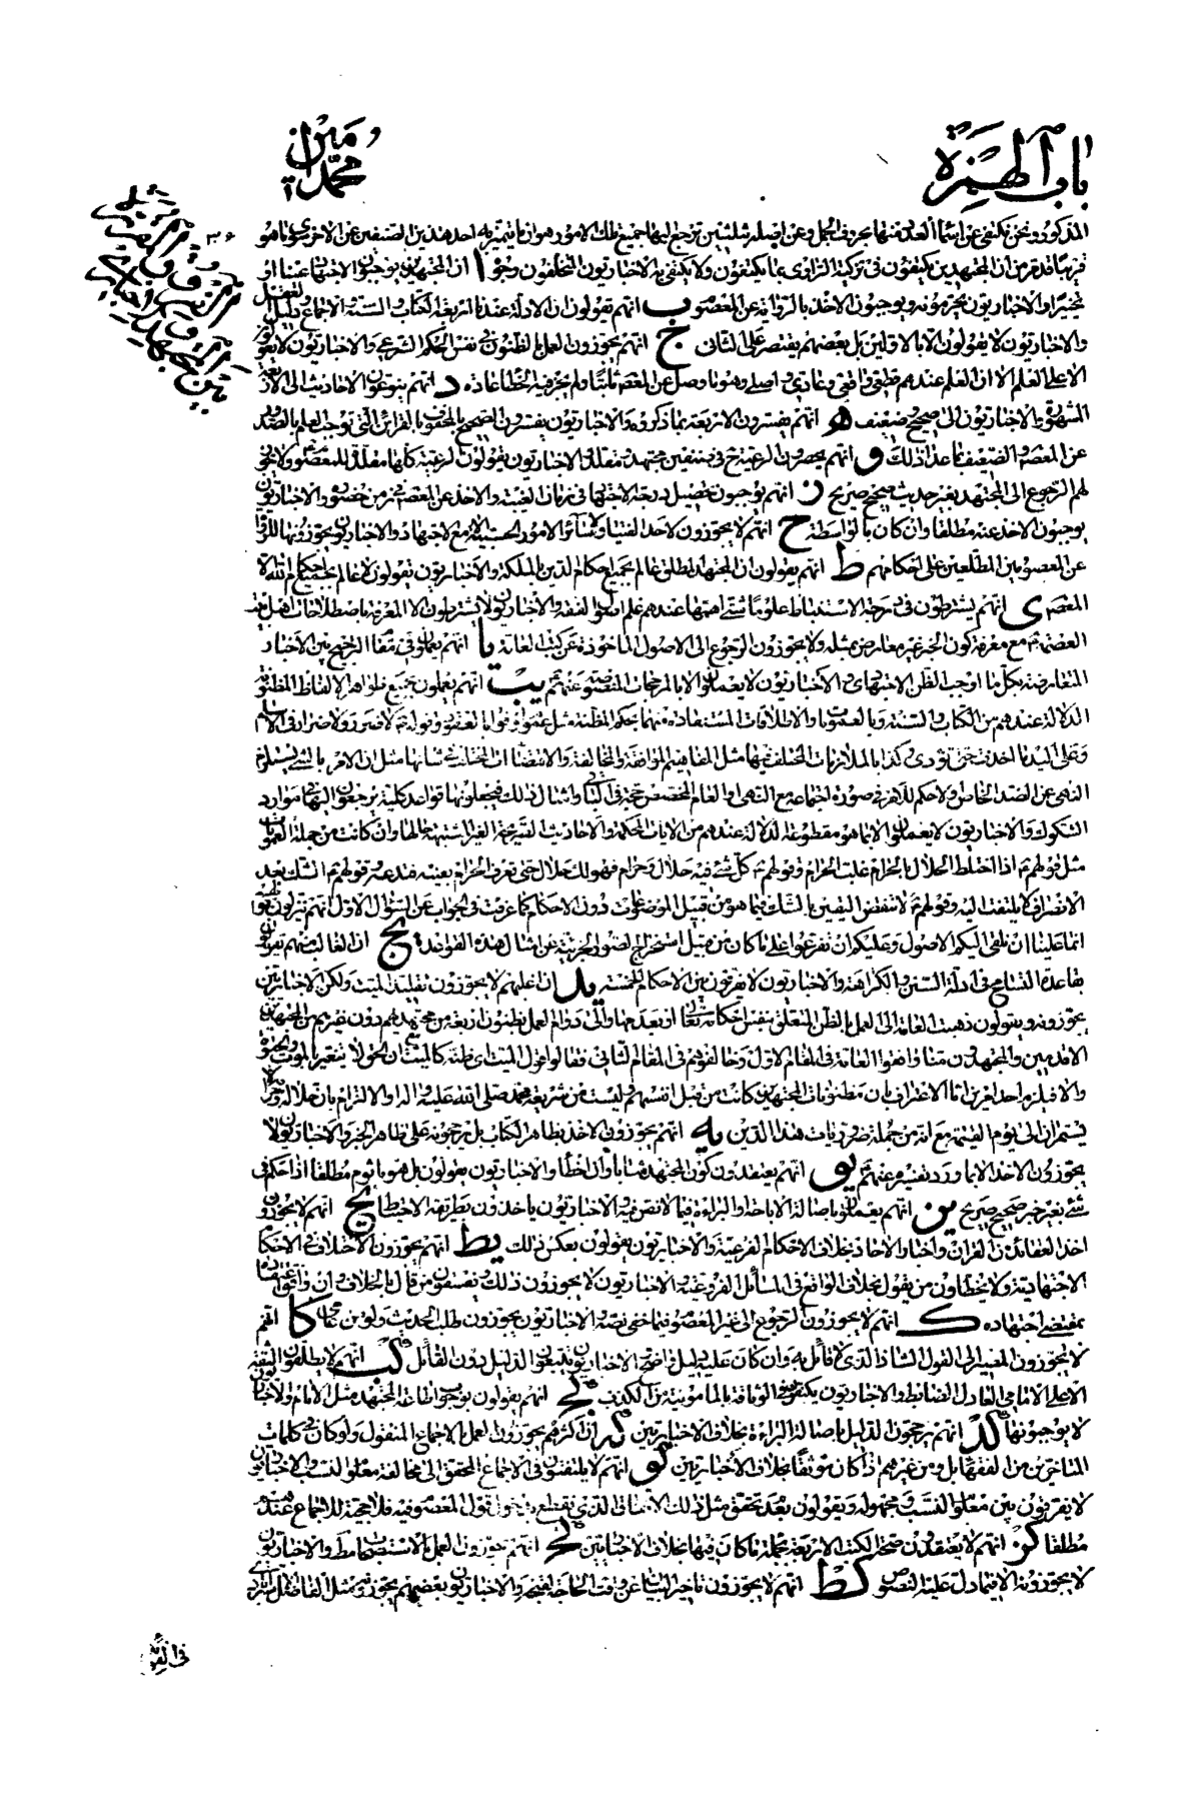 باب الهمزة
محمد امين
المذكور ونحن نكتفي عن اسماء العدد منها بحروف الجمل وعن اصله ترجع اليها جميع تلك الامور هو ان ما يتميز به احد هذين الصنفين عن الاخر سوى ما هو
ان المجتهدين يكتفون في تزكية الراوي بما يكتفون ولا يكتفي به الاخباريون المخالفون وجوه ا ان المجتهدين يوجبون الاجتهاد عينا او
تخييرا والاخباريون يحرمونه ويوجبون الاخذ بالرواية عن المعصوم ب انهم يقولون ان الادلة عندنا اربعة الكتاب والسنة والاجماع ودليل العقل
والاخباريون لا يقولون الا بالاولين بل بعضهم يقتصر على الثاني ج انهم يجوزون العمل بالظنون في نفس الحكم الشرعي والاخباريون لا يعولون
الا على العلم الا ان العلم عندهم قطعي واقعي وعادي واصلي وهو ما وصل عن المعصوم ثابتا ولم يجز فيه الخطا عادة د انهم ينوعون الاحاديث الى الاربعة
المشهورة والاخباريون الى صحيح وضعيف هو انهم يفسرون الاربعة بما ذكروه والاخباريون يفسرون الصحيح بالمحفوف بالقرائن التي توجب العلم بالصدور
عن المعصوم والضعيف بما عدا ذلك و انهم يحصرون الرعية ح في صنفين مجتهد ومقلد والاخباريون يقولون الرعية كلها مقلدة للمعصوم ولا يجوز
لهم الرجوع الى المجتهد بغير حديث صحيح صريح ز انهم يوجبون تحصيل درجة الاجتهاد في زمان الغيبة والاخذ عن المعصوم في زمن حضوره والاخباريون
يوجبون الاخذ عنه مطلقا وان كان بالواسطة ح انهم لا يجوزون لاحد الفتيا ولا سائر الامور الحسبية الا مع الاجتهاد والاخباريون يجوزونها للرواة
عن المعصومين المطلعين على احكامهم ط انهم يقولون ان المجتهد المطلق عالم بجميع احكام الدين بالملكة والاخباريون يقولون لا عالم بجميع احكام الله الا
المعصوم ى انهم يشترطون في درجة الاستنباط علوما شتى اهمها عندهم علم اصول الفقه والاخباريون لا يشترطون الا المعرفة باصطلاحات اهل بيت
العصمة مع معرفة كون الخبر غير معارض بمثله ولا يجوزون الرجوع الى الاصول الماخوذة عن كتب العامة يا انهم يعملون في مقام الترجيح بين الاخبار
المتعارضة بكل ما اوجب الظن الاجتهادي والاخباريون لا يعملون الا بالمرجحات المنصوصة عنهم يب انهم يعملون بجميع ظواهر الالفاظ المظنونة
الدلالة عندهم من الكتاب والسنة وبالعمومات والاطلاقات المستفادة منهما بحكم المظنة مثل عموم اوفوا بالعقود وقوله لا ضرر ولا ضرار في الاسلام
وعلى اليد ما اخذت حتى تؤدي وكذا بالملازمات المختلف فيها مثل المفاهيم الموافقة والمخالفة والاقتضاءات المختلف في شانها مثل ان الامر بالشيء يستلزم
النهي عن الضد الخاص وفي صورة اجتماعه مع النهي او العام المخصص حجة في الباقي وامثال ذلك فيجعلونها قواعد كلية يرجعون اليها في موارد
الشكوك والاخباريون لا يعملون الا بما هو مقطوعة الدلالة عندهم من الايات المحكمة والاحاديث الصريحة الغير المشتبهة حالها وان كانت من جملة العمومات
مثل قولهم اذا اختلط الحلال بالحرام غلب الحرام وقولهم كل شيء فيه حلال وحرام فهو لك حلال حتى تعرف الحرام بعينه فتدعه وقولهم الشك بعد
الانصراف لا يلتفت اليه وقولهم لا تنقض اليقين بالشك فيما هو من قبيل الموضوعات دون الاحكام كما عرفت في الجواب عن السؤال الاول انهم
انما علينا ان نلقي اليكم الاصول وعليكم ان تفرعوا على ما كان من قبيل استخراج الصور الجزئية عن امثال هذه القواعد يج ان الغالب منهم يقولون
بقاعدة التسامح في ادلة السنن والكراهة والاخباريون لا يفرقون بين الاحكام الخمسة يد ان اغلبهم لا يجوزون تقليد الميت ولكن الاخباريين
يجوزونه ويقولون ذهبت العامة الى العمل بالظن المتعلق بنفس احكامه تعالى او بعدمها والى دوام العمل بظنون اربعة من مجتهديهم دون غيرهم من المجتهدين
الاقدمين والمجتهدون منا وافقوا العامة في المقام الاول وخالفوهم في المقام الثاني فقالوا قول الميت اي ظنه كالميت مع ان الحق لا يتغير بالموت والحيوة
والا فيلزم احد امرين اما الاعتراف بان مظنونات المجتهدين كانت من قبل انفسهم وليست من شريعة محمد صلى الله عليه واله او الالتزام بان حلاله وحرامه لا
يستمران الى يوم القيمة مع انه من جملة ضروريات هذا الدين يه انهم يجوزون الاخذ بظاهر الكتاب بل يرجحونه على ظاهر الخبر والاخباريون لا
يجوزون الاخذ الا بما ورد تفسيره عنهم يو انهم يعتقدون كون المجتهد مثابا وان اخطا والاخباريون يقولون بل هو ماثوم مطلقا اذا حكم في
شيء بغير خبر صحيح صريح يز انهم يعملون باصالة الاباحة والبراءة فيما لا نص فيه والاخباريون ياخذون بطريقة الاحتياط يح انهم لا يجوزون
اخذ العقائد من القران واخبار الاحاد بخلاف الاحكام الفرعية والاخباريون يقولون بعكس ذلك يط انهم يجوزون الاختلاف في الاحكام
الاجتهادية ولا يخطاون من يقول بخلاف الواقع في المسائل الفروعية والاخباريون لا يجوزون ذلك ويفسقون من قال بالخلاف وان وافق
بمقتضى اجتهاده ك انهم لا يجوزون الرجوع الى غير المعصوم فيما خفي نصه والاخباريون يجوزون طلب الحديث ولو من عامي كا انهم
لا يجوزون المصير الى القول الشاذ الذي لا قائل به وان كان عليه دليل واضح والاخباريون يتبعون الدليل دون القائل كب انهم لا يطلقون الثقة
الا على الامامي العادل الضابط والاخباريون يكتفون في الوثاقة بالمامونية من الكذب كج انهم يقولون بوجوب اطاعة المجتهد مثل الامام والاخباريون
لا يوجبونها كد انهم يرجحون الدليل باصالة البراءة بخلاف الاخباريين كه ان اكثرهم يجوزون العمل بالاجماع المنقول ولو كان في كلمات
المتاخرين من الفقهاء بل ومن غيرهم اذا كان موثقا بخلاف الاخباريين كو انهم لا يلتفتون في الاجماع المحقق الى مخالفة معلوم النسب والاخباريون
لا يفرقون بين معلوم النسب ومجهوله ويقولون بعد تحقق مثل ذلك الاتفاق الذي نقطع بدخول قول المعصوم فيه فلا حجية للاجماع عندهم
مطلقا كز انهم لا يعتقدون صحة الكتب الاربعة بجملة ما كان فيها بخلاف الاخباريين كح انهم يجوزون العمل بالاستصحاب مطلقا والاخباريون
لا يجوزونه الا فيما دل عليه النصوص كط انهم لا يجوزون تاخير البيان عن وقت الحاجة لقبحه والاخباريون بعضهم يجوزه مثل الفاضل
في الفوائد